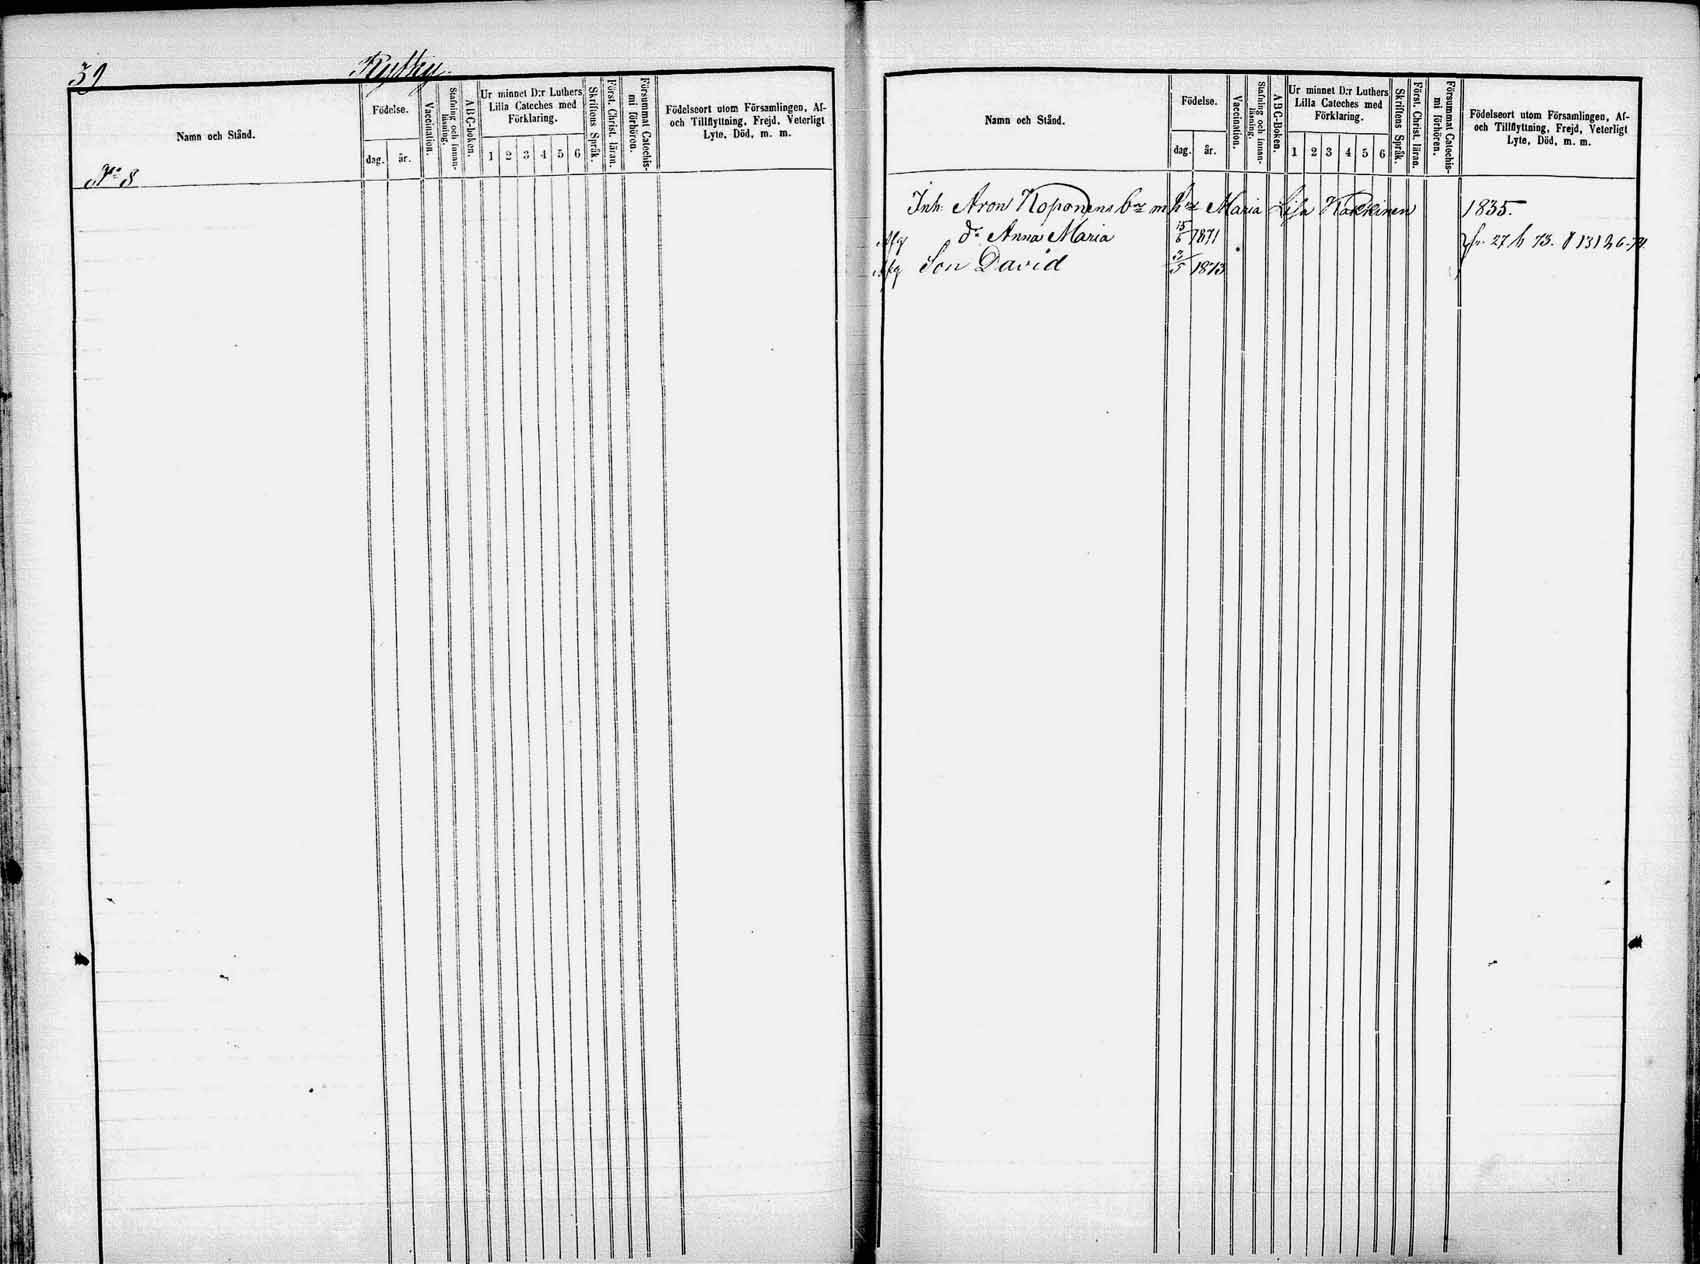 39 Kylky.
Namn och Stånd.
Födelse.
dag. år.
Vaccination.
Stafning och Innanläsning.
ABC-boken.
Ur minnet D:r Luthers Lilla Cateches med Förklaring.
1 2 3 4 5 6
Skriftens Språk.
Först. Christ. läran.
Försummat Catechismi förhören.
Födelseort utom Församlingen, Af- och Tillflyttning, Frejd, Veterligt Lyte, Död, m. m.
No 8
Namn och Stånd.
Födelse.
dag. år.
Vaccination.
Stafning och Innanläsning.
ABC-Boken.
Ur minnet D:r Luthers Lilla Cateches med Förklaring.
1 2 3 4 5 6
Skriftens Språk.
Först. Christ. läran.
Försummat Catechismi förhören.
Födelseort utom Församlingen, Af- och Tillflyttning, Frejd, Veterligt Lyte, Död, m. m.
Inh. Aron Koponens Maria Lisa Kokkinen 1835.
Afg dr Anna Maria 15/6 1871
Afg Son David 3/5 1873